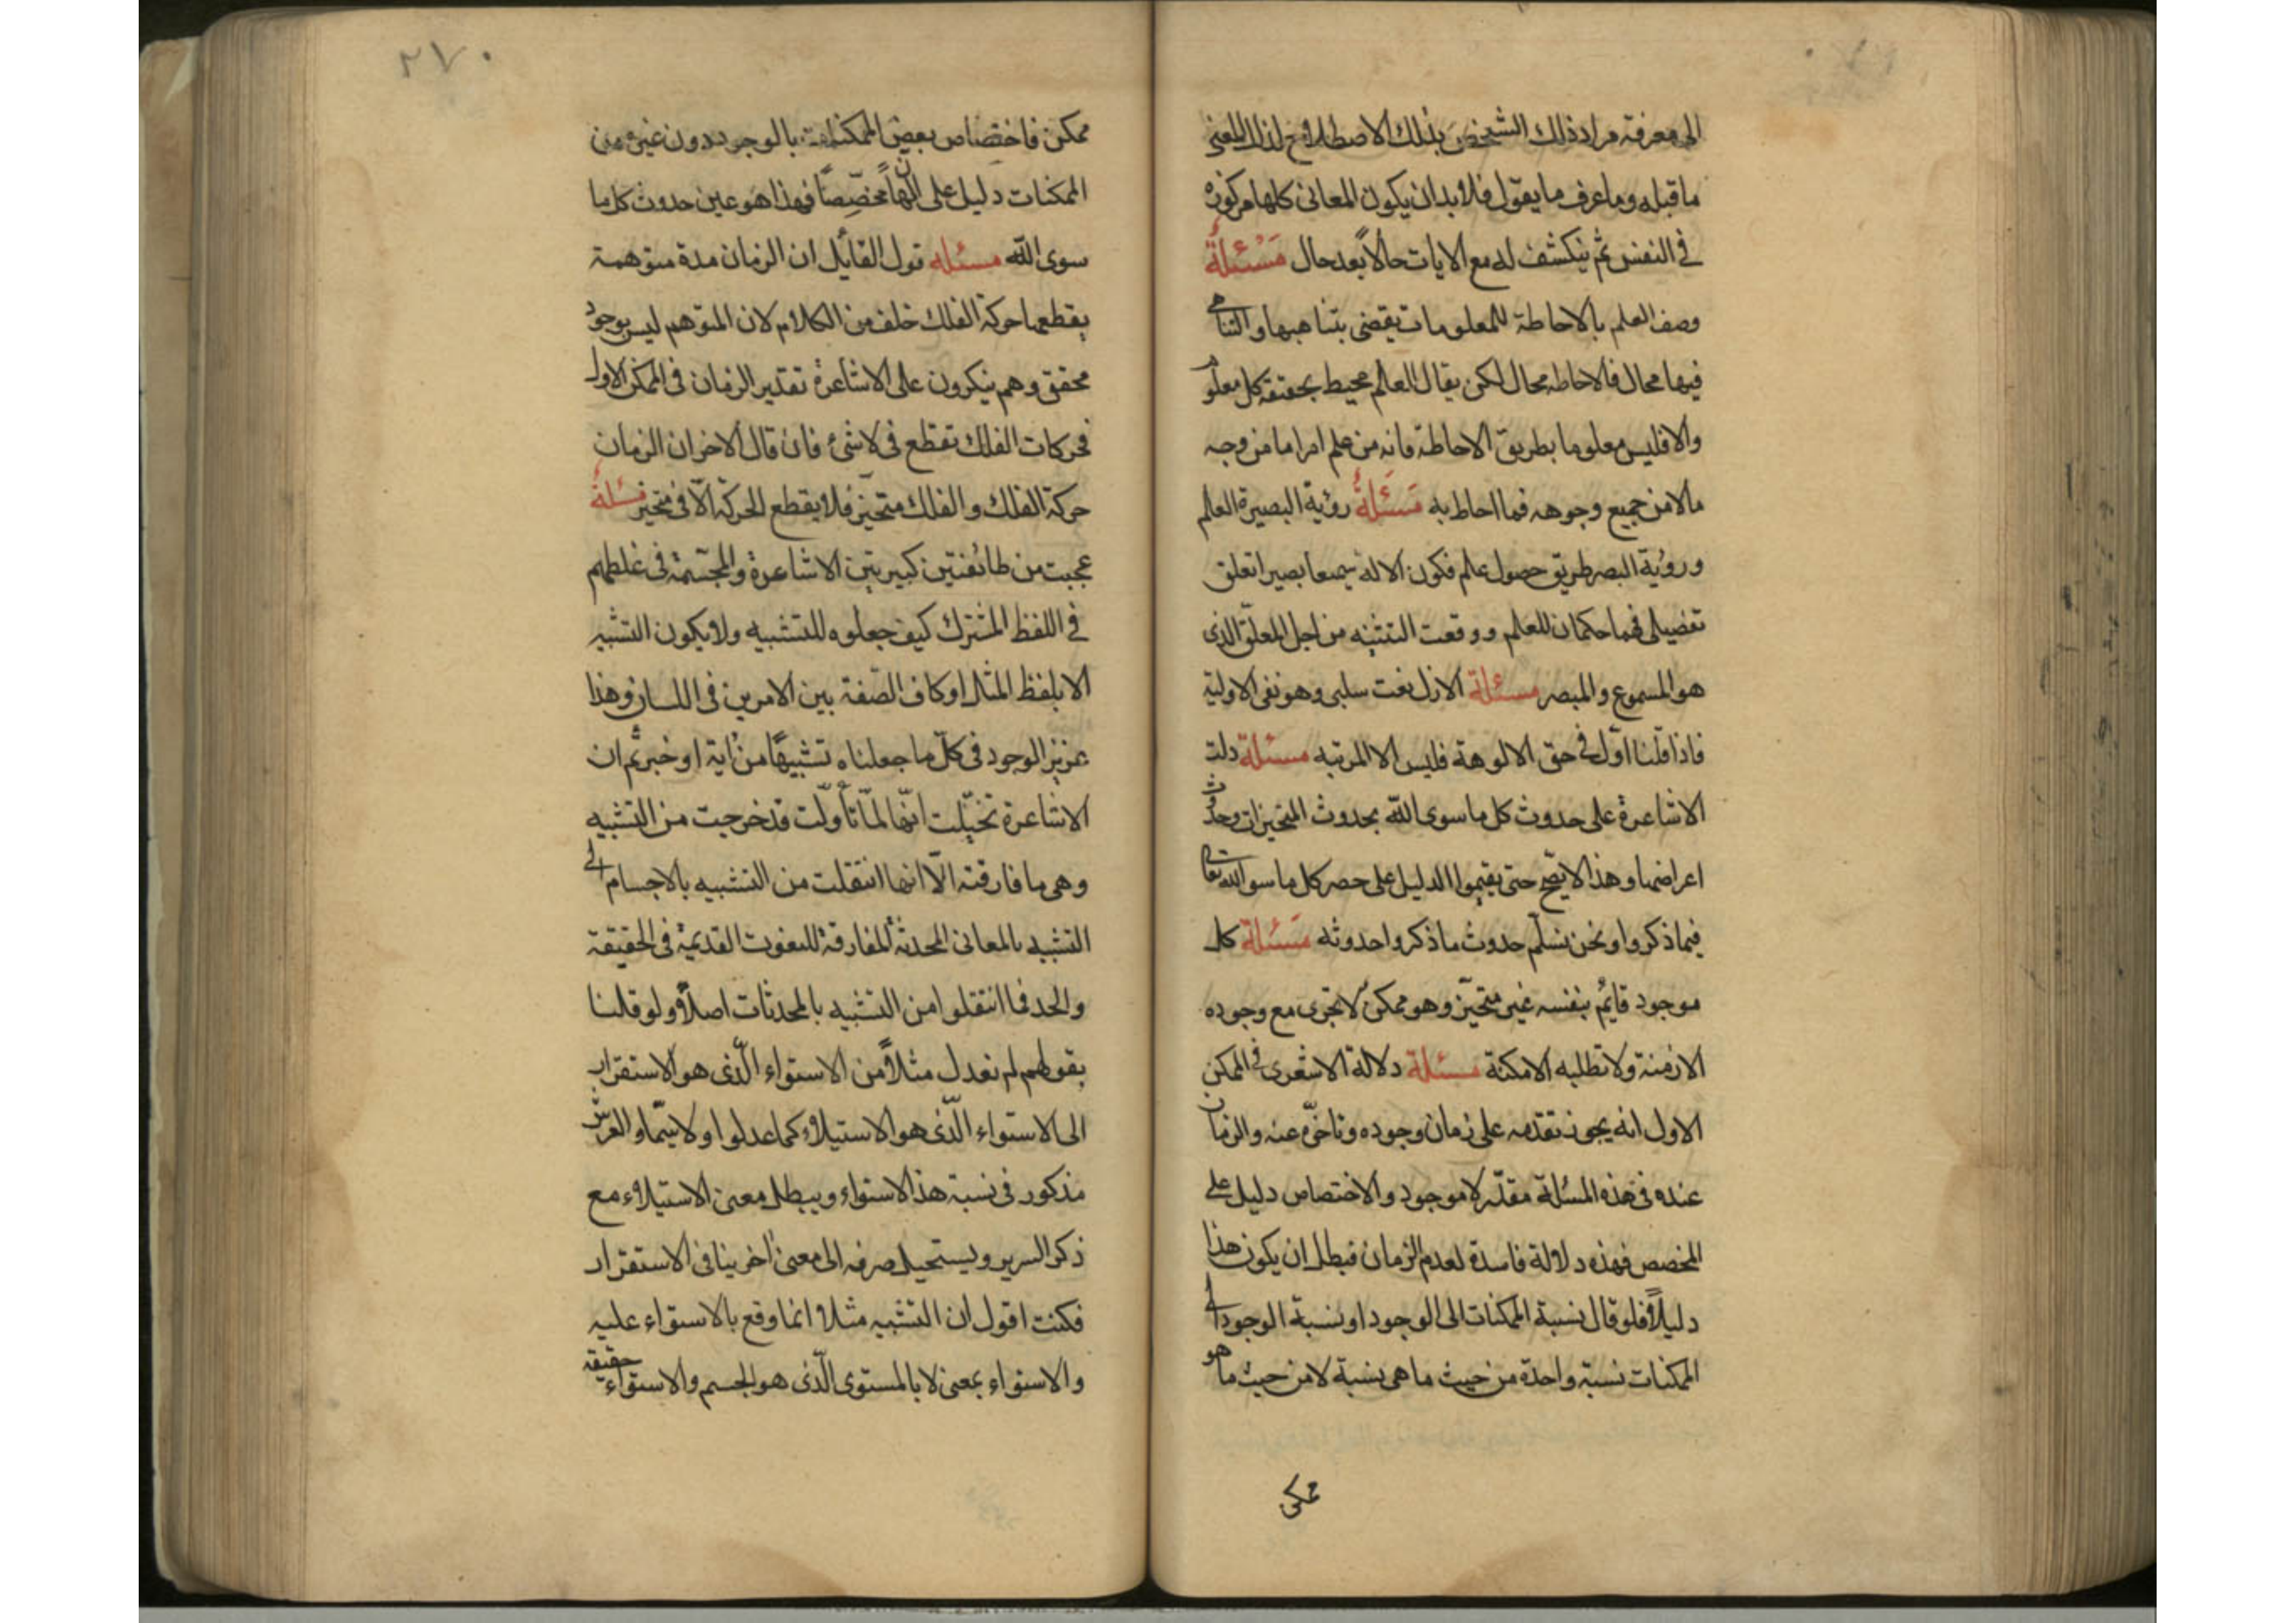 الى معرفة مراد ذلك الشخص بذلك الاصطلاح لذلك المعنى
ما قبله وما عرف ما يقول فلا بد ان يكون المعانى كلها مركوزة
في النفس ثم ينكشف له مع الايات حالاً بعد حال مَسْئلةٌ
وصف العلم بالاحاطة للمعلومات يقضى بتناهيها والتناهى
فيها محال فالاحاطة محال لكن يقال العالم محيط بحقيقة كل معلوم
والا فليس معلوما بطريق الاحاطة فانه من علم امرا ما من وجه
ما لا من جميع وجوهه فما احاط به مَسَئلةٌ رؤية البصيرة العلم
ورؤية البصر طريق حصول علم فكون الاله سميعا بصيرا تعلق
تفصيلى فهما حكمان للعلم ووقعت التثنية من اجل المعلق الذى
هو المسموع والمبصر مسئلة الازل نعت سلبى وهو نفى الاولية
فاذا قلنا اوّل في حق الالوهة فليس الا المرتبه مسئلة دلت
الاشاعرة على حدوث كل ما سوى الله بحدوث المتحيزات وحدوث
اعراضها وهذا لا يصحّ حتى يقيموا الدليل على حصر كل ما سوا الله تعالى
فيما ذكروا ونحن نسلّم حدوث ما ذكروا حدوثه مَسئلة كل
موجود قايمُ بنفسه غير متحيّز وهو ممكن لا تجرى مع وجوده
الازمنة ولا تطلبه الامكنة مسئلة دلالة الاشعرى في الممكن
الاول انه يجوز تقدمه على زمان وجوده وتاخّره عنه والزمان
عنده فى هذه المسئلة مقدّر لا موجود والاختصاص دليل على
المخصص فهذه دلالة فاسدة لعدم الزمان فبطل ان يكون هذا
دليلاً فلو قال نسبة الممكنات الى الوجود او نسبة الوجود الى
الممكنات نسبة واحدة من حيث ما هى نسبة لا من حيث ما هو
ممكن
٢٧٠
ممكن فاختصاص بعض الممكنات بالوجود دون غيره من
الممكنات دليل على ان لها مخصّصاً فهذا هو عين حدوث كل ما
سوى الله مسئله قول القائل ان الزمان مدة متوهمة
يقطعها حركة الفلك خلف من الكلام لان المتوهم ليس بوجود
محقق وهم ينكرون على الاشاعرة تقدير الزمان فى الممكن الاول
فحركات الفلك تقطع فى لا شىء فان قال الاخر ان الزمان
حركة الفلك والفلك متحيّز فلا يقطع الحركة الّا فى متحيز مسئلةٌ
عجبت من طائفتين كبيرتين الاشاعرة والمجسّمة فى غلطهم
في اللفظ المشترك كيف جعلوه للتشبيه ولا يكون التشبيه
الا بلفظ المثل او كاف الصّفة بين الامرين فى اللسان وهذا
عزيز الوجود فى كلّ ما جعلناه تشبيهًا من اية او خبر ثم ان
الاشاعرة تخيّلت انّها لمّا تأولّت قد خرجت من التشبيه
وهى ما فارقته الّا انها انتقلت من التشبيه بالاجسام الى
التشبيه بالمعانى المحدثة المفارقة للنعوت القديمة فى الحقيقة
والحد فما انتقلوا من التشبيه بالمحدثات اصلاً ولو قلنا
بقولهم لم نعدل مثلاً من الاستواء الّذى هو الاستقرار
الى الاستواء الّذى هو الاستيلاء كما عدلوا ولا سيّما والعرش
مذكور فى نسبة هذا الاستواء ويبطل معنى الاستيلاء مع
ذكر السرير ويستحيل صرفه الى معنى اخر ينافى الاستقرار
فكنت اقول ان التشبيه مثلا انما وقع بالاستواء عليه
والاستواء بمعنى لا بالمستوى الّذى هو الجسم والاستواء حقيقة